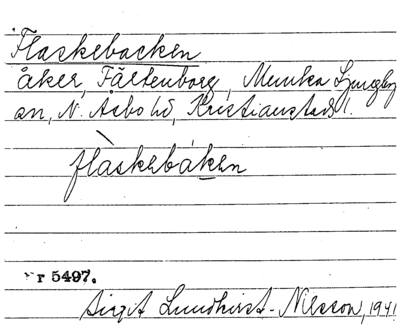 Flaskebacken
åker, Fältenborg, Munka Ljungby
sn, N. Åsbo hd, Kristianstads l.
flàskebáken
r 5497.
Birgit Lundkvist-Nilsson, 1941